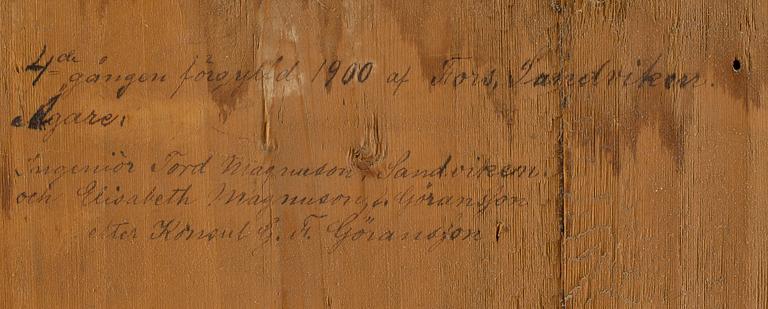 4de gången förgylld 1900 af Fors, Sandviken.
Ägare:
Ingeniör Tord Magnuson, Sandviken.
och Elisabeth Magnuson, f. Göransson
efter Konsul G. F. Göransson